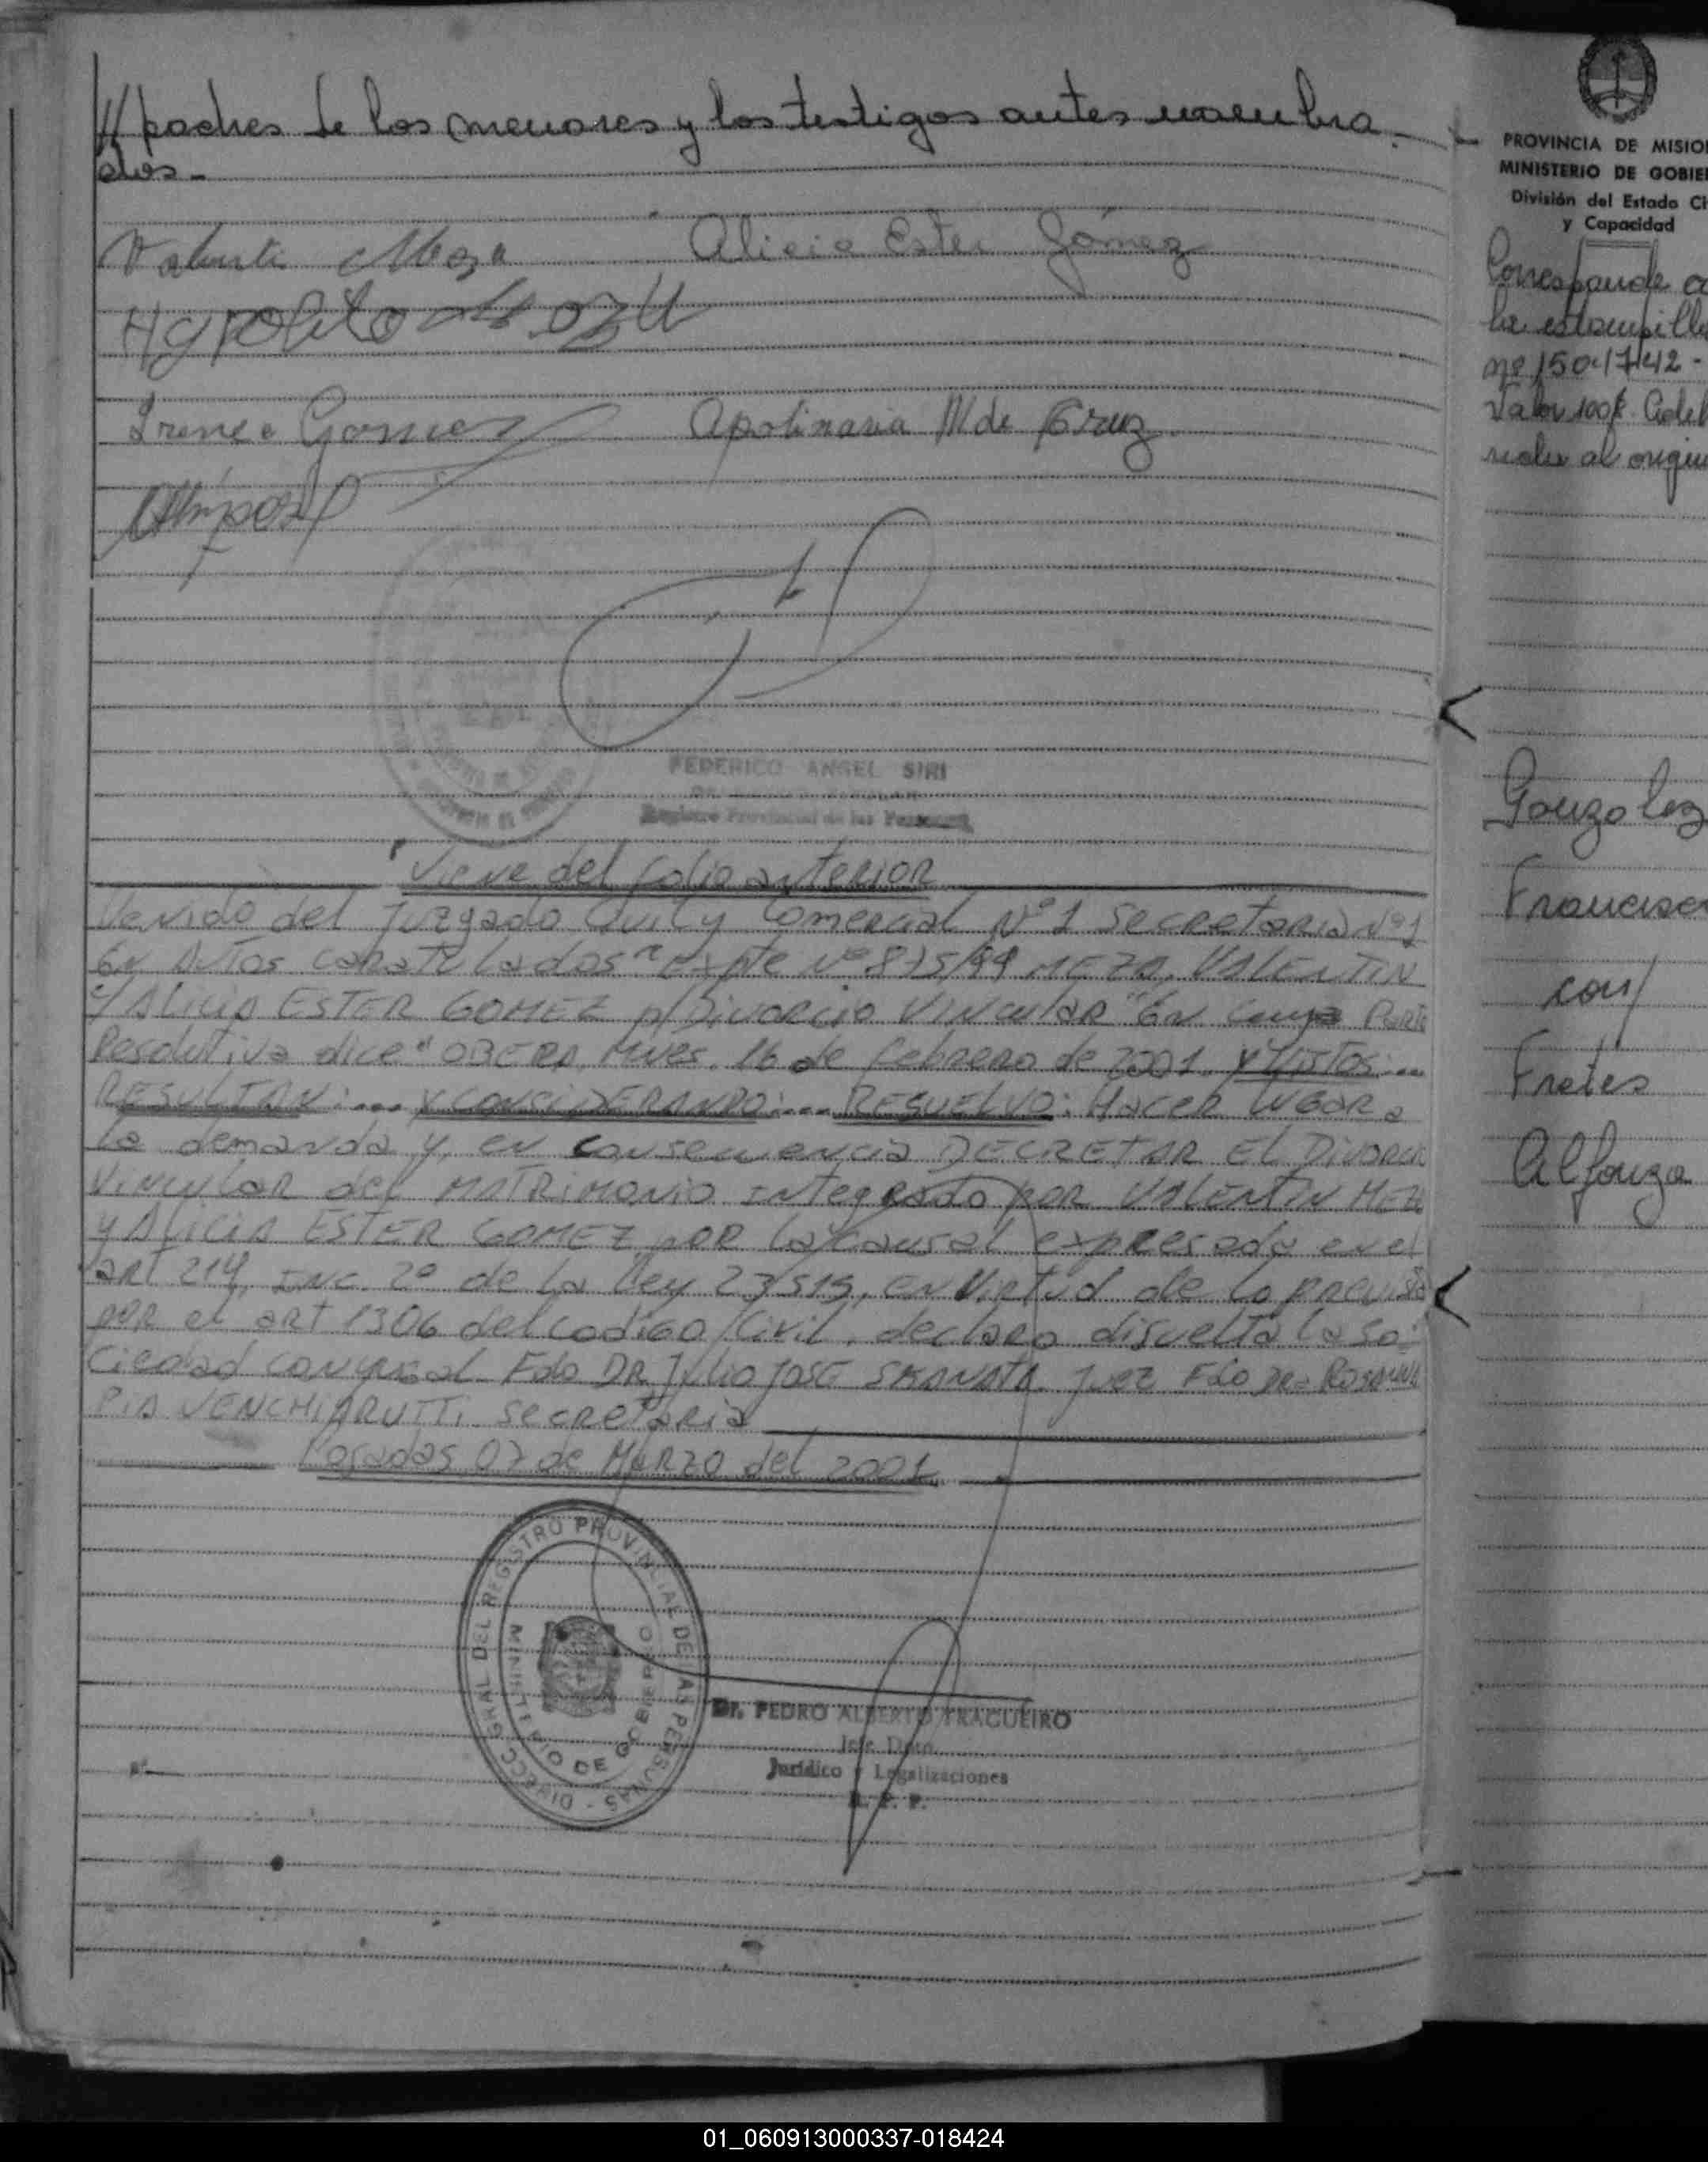 // padres de los menores y los testigos antes nombra-
dos.-
Valentin Meza Alicia Ester Gómez
Hypolito Meza
Ireneo Gomez Apolinaria M de Cruz
FEDERICO ANGEL SIRI
Registro Provincial de las Personas
Viene del folio anterior
Venido del Juzgado Civil y Comercial Nº 1 Secretaria Nº 1
En Autos caratulados "Expte Nº 875/99 MEZA, VALENTIN
c/ ALICIA ESTER GOMEZ p/ Divorcio Vincular" En cuya Parte
Resolutiva dice "OBERA, Mnes. 16 de febrero de 2001. Y VISTOS:...
RESULTAN:... Y CONSIDERANDO:... RESUELVO: Hacer lugar a
la demanda y, en consecuencia DECRETAR El Divorcio
Vincular del MATRIMONIO Integrado por VALENTIN MEZA
y Alicia ESTER GOMEZ por la causal expresada en el
art 214, INC. 2º de la Ley 23.515, en Virtud de lo previsto
por el art 1306 del codigo Civil, declaro disuelta la so-
ciedad conyugal. Fdo DR Julio JOSE Juez Fdo Dra ROSANNA
PIA VENCHIARUTTI. Secretaria
Posadas 07 de MARZO del 2001
DIRECC GRAL DEL REGISTRO PROVINCIAL DE LAS PERSONAS -
MINISTERIO DE GOBIERNO
Dr. PEDRO ALBERTO TRAGUEIRO
Jefe Dpto.
Jurídico y Legalizaciones
R. P. P.
PROVINCIA DE MISIO
MINISTERIO DE GOBIE
División del Estado Ci
y Capacidad
Corresponde a
la estampilla
nº 1504742-
Valor 100$. Adhe
rida al origin
Gonzalez
Francisco
con/
Fretes
Alfonza
01_060913000337-018424